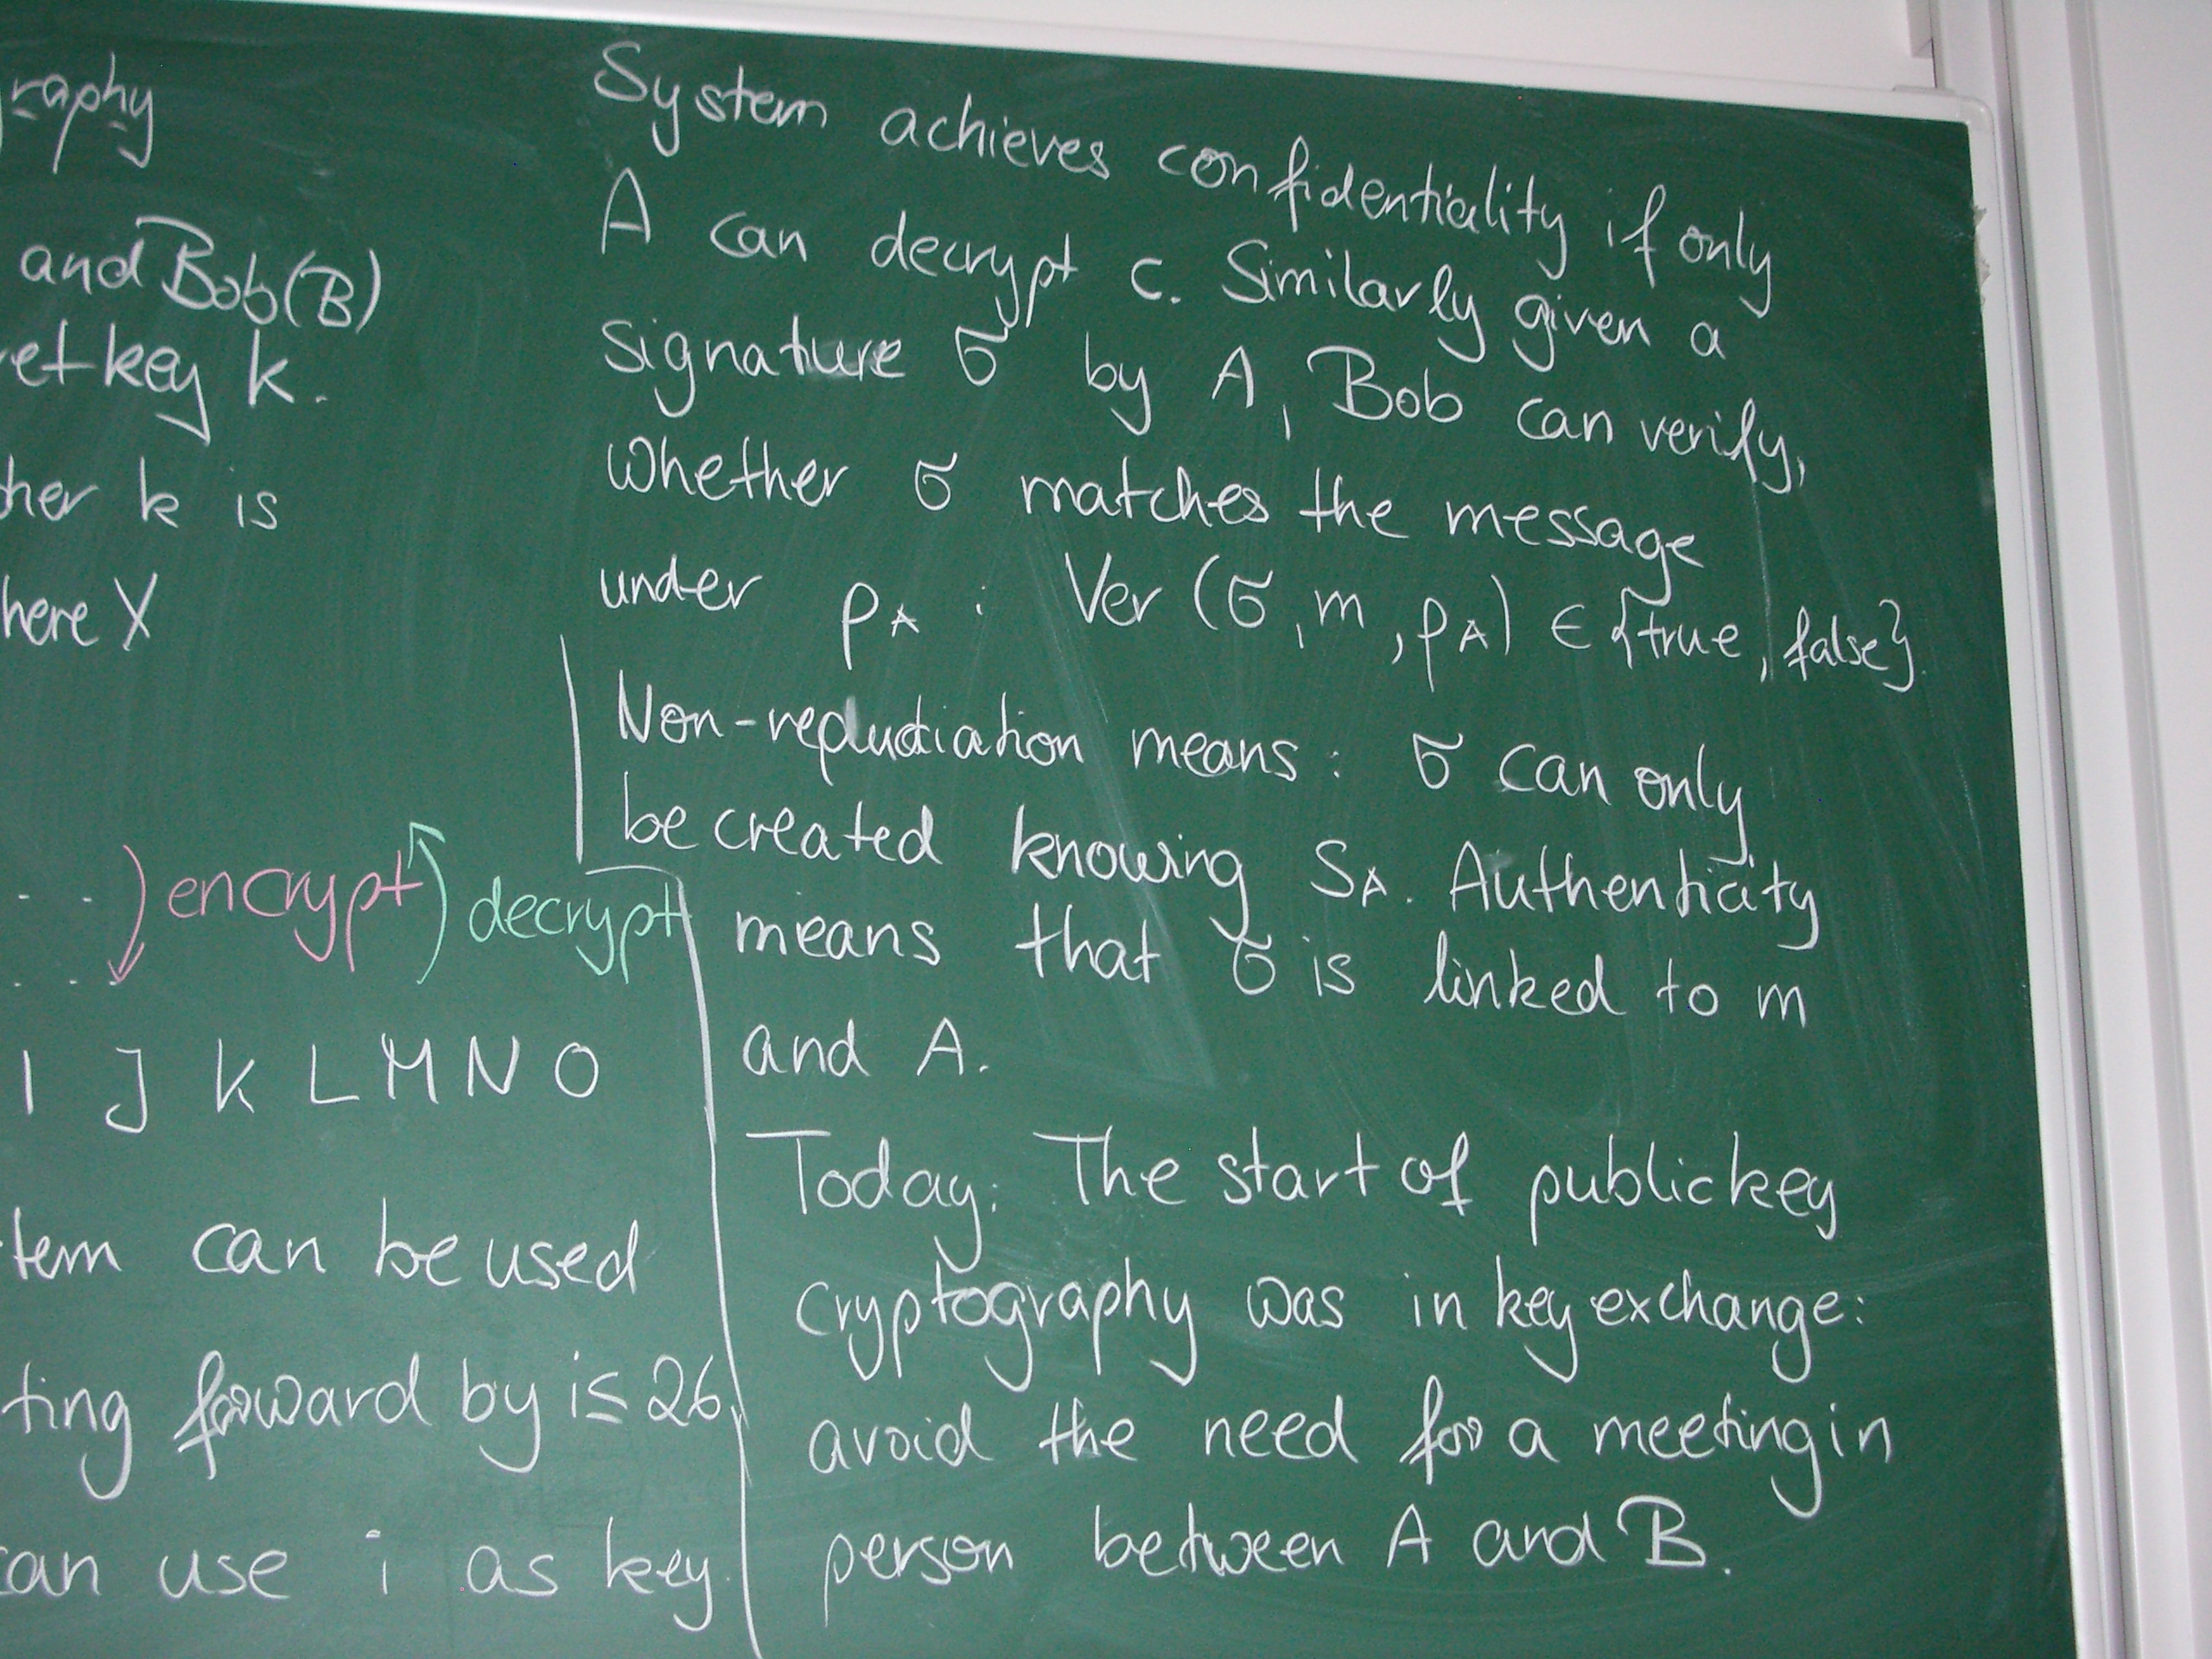 raphy
and Bob(B)
et key k.
her k is
here X
. . ) encrypt ) decrypt
. . .
I J K L M N O
tem can be used
ting forward by i≤26,
can use i as key.
System achieves confidentiality if only
A can decrypt c. Similarly given a
signature σ by A, Bob can verify,
whether σ matches the message
under pA : Ver (σ, m, pA) ∈ {true, false}.
Non-repudiation means: σ can only
be created knowing SA. Authenticity
means that σ is linked to m
and A.
Today: The start of public key
cryptography was in key exchange:
avoid the need for a meeting in
person between A and B.